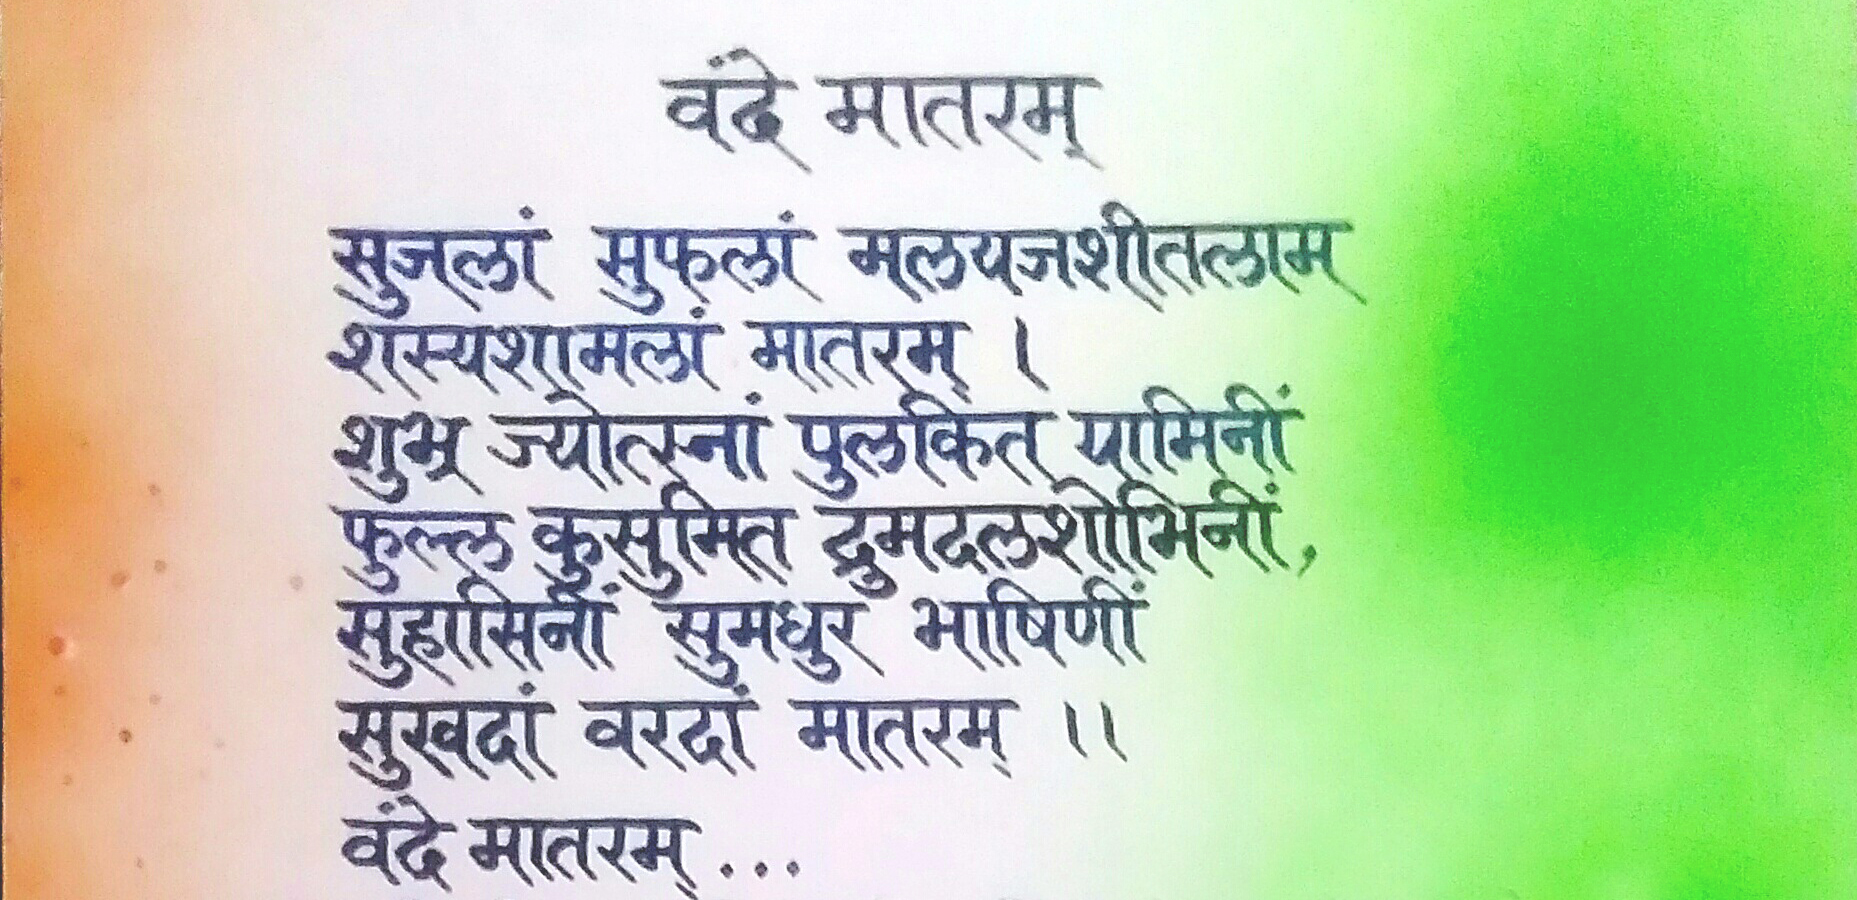 वंदे मातरम्
सुजलां सुफलां मलयजशीतलाम
शस्यशामलां मातरम् ।
शुभ्र ज्योत्स्नां पुलकित यामिनीं
फुल्ल कुसुमित द्रुमदलशोभिनीं,
सुहासिनीं सुमधुर भाषिणीं
सुखदां वरदां मातरम् ।।
वंदे मातरम्...